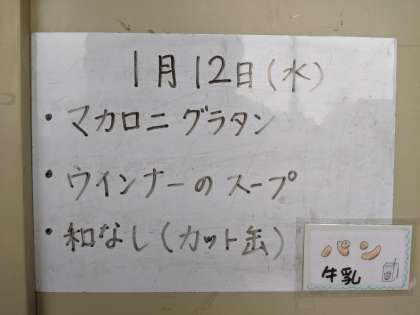 1月12日(水)
・マカロニグラタン
・ウインナーのスープ
・和なし(カット缶)
パン
牛乳